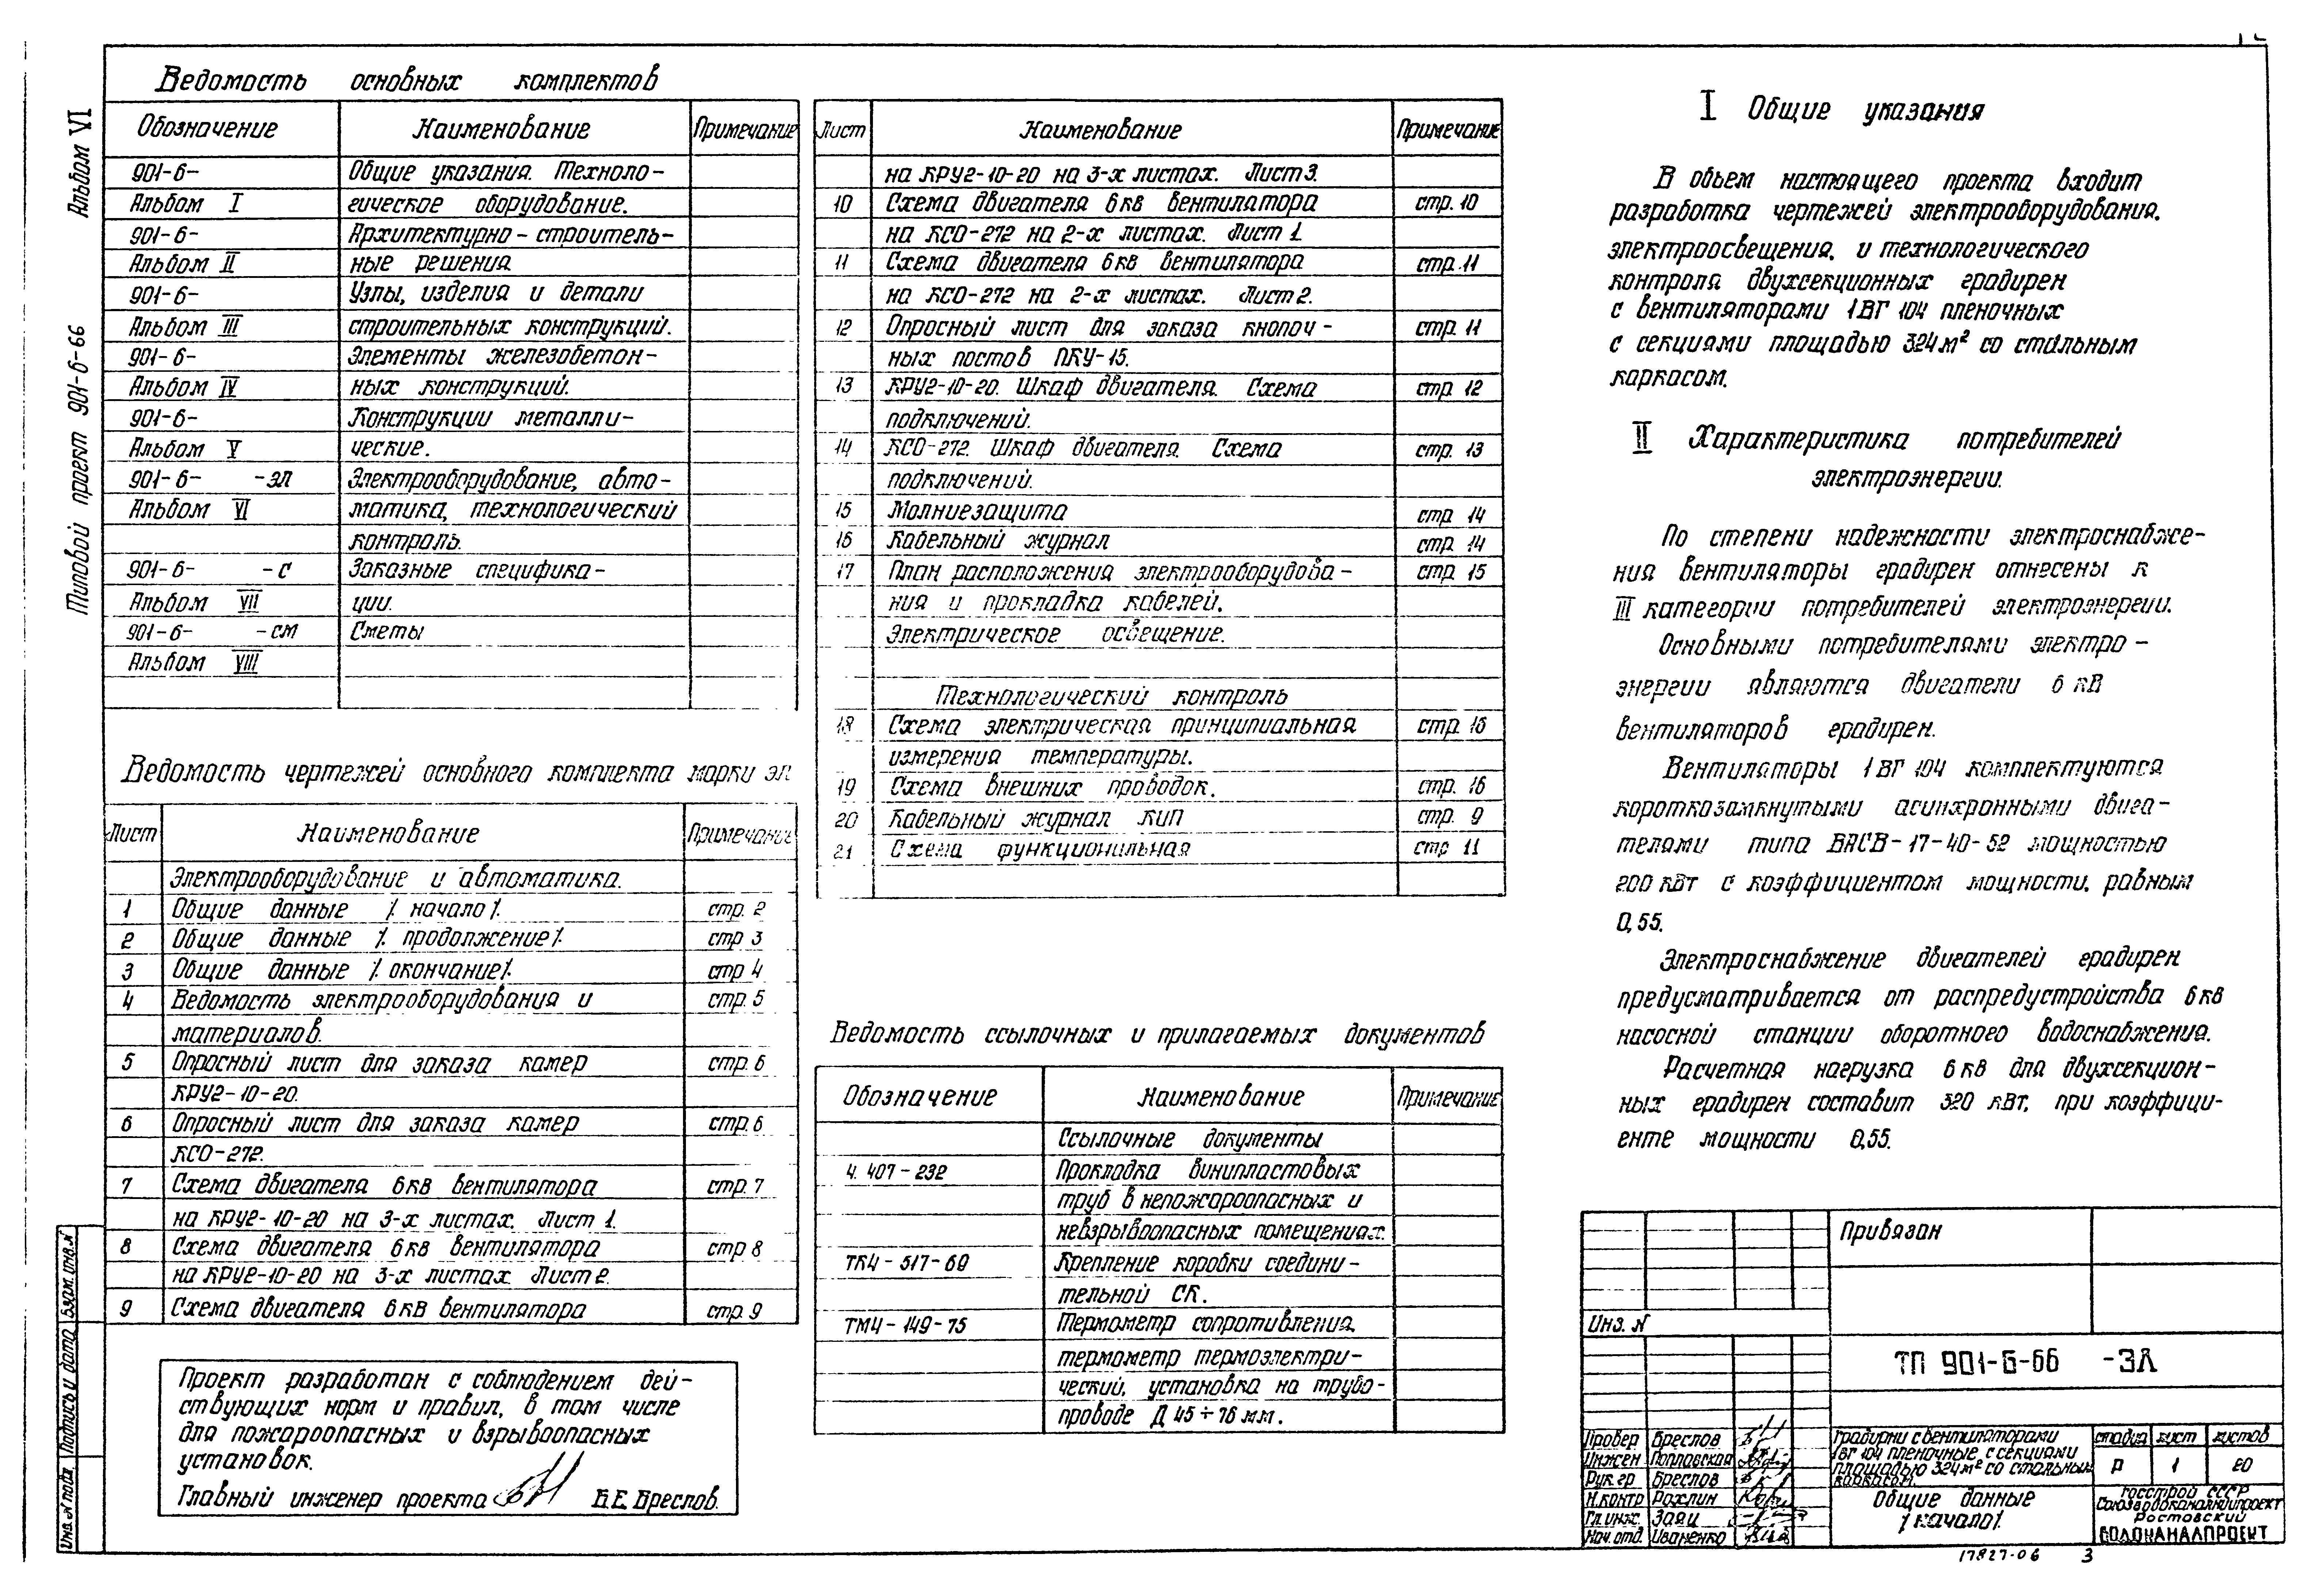 Альбом VI
Типовой проект 901-6-66
Ведомость основных комплектов
Обозначение Наименование Примечание
901-6- Общие указания. Техноло-
Альбом I гическое оборудование.
901-6- Архитектурно-строитель-
Альбом II ные решения
901-6- Узлы, изделия и детали
Альбом III строительных конструкций.
901-6- Элементы железобетон-
Альбом IV ных конструкций.
901-6- Конструкции металли-
Альбом V ческие.
901-6- -ЭЛ Электрооборудование, авто-
Альбом VI матика, технологический
контроль.
901-6- -С Заказные специфика-
Альбом VII ции.
901-6- -СМ Сметы
Альбом VIII
Ведомость чертежей основного комплекта марки ЭЛ
Лист Наименование Примечание
Электрооборудование и автоматика.
1 Общие данные /. начало/. стр. 2
2 Общие данные /. продолжение/. стр 3
3 Общие данные /. окончание/. стр 4
4 Ведомость электрооборудования и стр. 5
материалов.
5 Опросный лист для заказа камер стр. 6
КРУ2-10-20.
6 Опросный лист для заказа камер стр. 6
КСО-272.
7 Схема двигателя 6кв вентилятора стр. 7
на КРУ2-10-20 на 3-х листах. Лист 1.
8 Схема двигателя 6кв вентилятора стр 8
на КРУ2-10-20 на 3-х листах Лист 2.
9 Схема двигателя 6кв вентилятора стр. 9
Проект разработан с соблюдением дей-
ствующих норм и правил, в том числе
для пожароопасных и взрывоопасных
установок.
Главный инженер проекта Б.Е. Бреслов.
Лист Наименование Примечание
на КРУ2-10-20 на 3-х листах. Лист 3.
10 Схема двигателя 6кв вентилятора стр. 10
на КСО-272 на 2-х листах. Лист 1
11 Схема двигателя 6кв вентилятора стр. 11
на КСО-272 на 2-х листах. Лист 2.
12 Опросный лист для заказа кнопоч- стр. 11
ных постов ПКУ-15.
13 КРУ2-10-20. Шкаф двигателя. Схема стр. 12
подключений.
14 КСО-272. Шкаф двигателя. Схема стр. 13
подключений.
15 Молниезащита стр. 14
16 Кабельный журнал стр. 14
17 План расположения электрооборудова- стр. 15
ния и прокладка кабелей.
Электрическое освещение.
Технологический контроль
18 Схема электрическая принципиальная стр. 16
измерения температуры.
19 Схема внешних проводок. стр. 16
20 Кабельный журнал КИП стр. 9
21 Схема функциональная стр 11
Ведомость ссылочных и прилагаемых документов
Обозначение Наименование Примечание
Ссылочные документы
4.407-232 Прокладка винипластовых
труб в непожароопасных и
невзрывоопасных помещениях.
ТК4-517-69 Крепление коробки соедини-
тельной СК.
ТМ4-149-75 Термометр сопротивления,
термометр термоэлектри-
ческий, установка на трубо-
проводе Д 45÷76 мм.
I Общие указания
В объем настоящего проекта входит
разработка чертежей электрооборудования,
электроосвещения, и технологического
контроля двухсекционных градирен
с вентиляторами 1ВГ 104 пленочных
с секциями площадью 324м² со стальным
каркасом.
II Характеристика потребителей
электроэнергии.
По степени надежности электроснабже-
ния вентиляторы градирен отнесены к
III категории потребителей электроэнергии.
Основными потребителями электро-
энергии являются двигатели 6 кв
вентиляторов градирен.
Вентиляторы 1ВГ 104 комплектуются
короткозамкнутыми асинхронными двига-
телями типа ВАСВ-17-40-52 мощностью
200 кВт с коэффициентом мощности, равным
0,55.
Электроснабжение двигателей градирен
предусматривается от распредустройства 6кв
насосной станции оборотного водоснабжения.
Расчетная нагрузка 6кв для двухсекцион-
ных градирен составит 320 кВт, при коэффици-
енте мощности 0,55.
Привязан
Инв. N
ТП 901-6-66 -ЭЛ
Провер Бреслов
Инжен Поплавская
Рук.гр Бреслов
Н.контр Рохлин
Гл.инж. Заяц
Нач.отд. Иваненко
Градирни с вентиляторами
1ВГ 104 пленочные, с секциями
площадью 324м² со стальным
каркасом.
стадия лист листов
Р 1 20
Общие данные
/начало/.
Госстрой СССР
Союзводоканалниипроект
Ростовский
ВОДОКАНАЛПРОЕКТ
Инв. N подл. Подпись и дата Взам. инв. N
17827-06 3